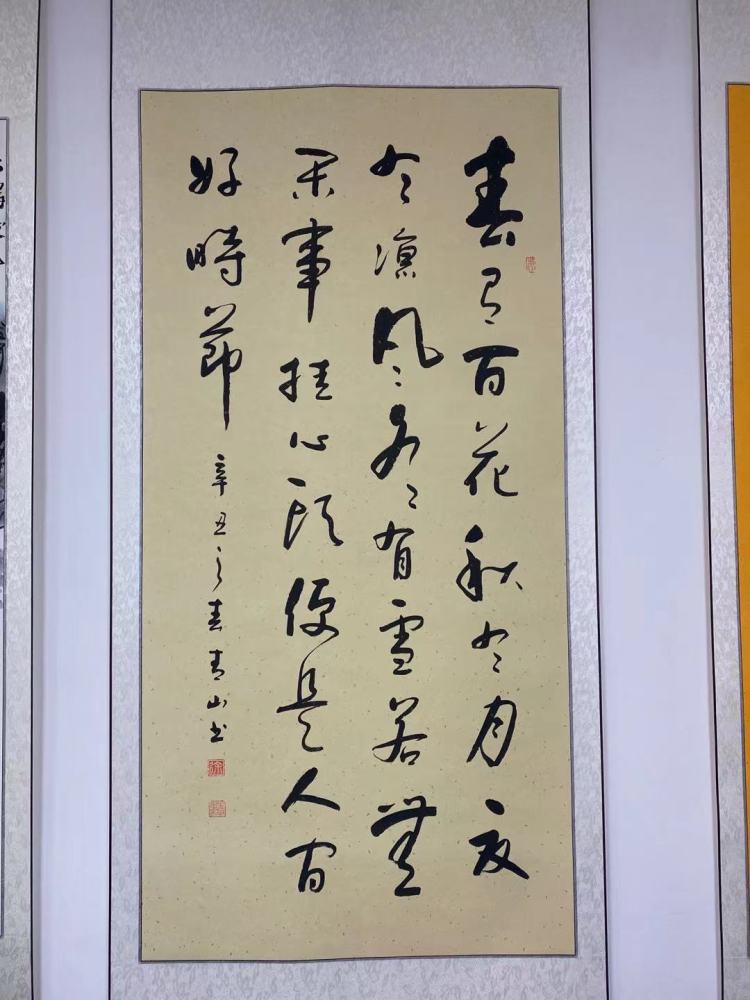 春有百花秋有月夏
有凉风冬有雪若無
闲事挂心頭便是人间
好時節
辛丑之春青山书